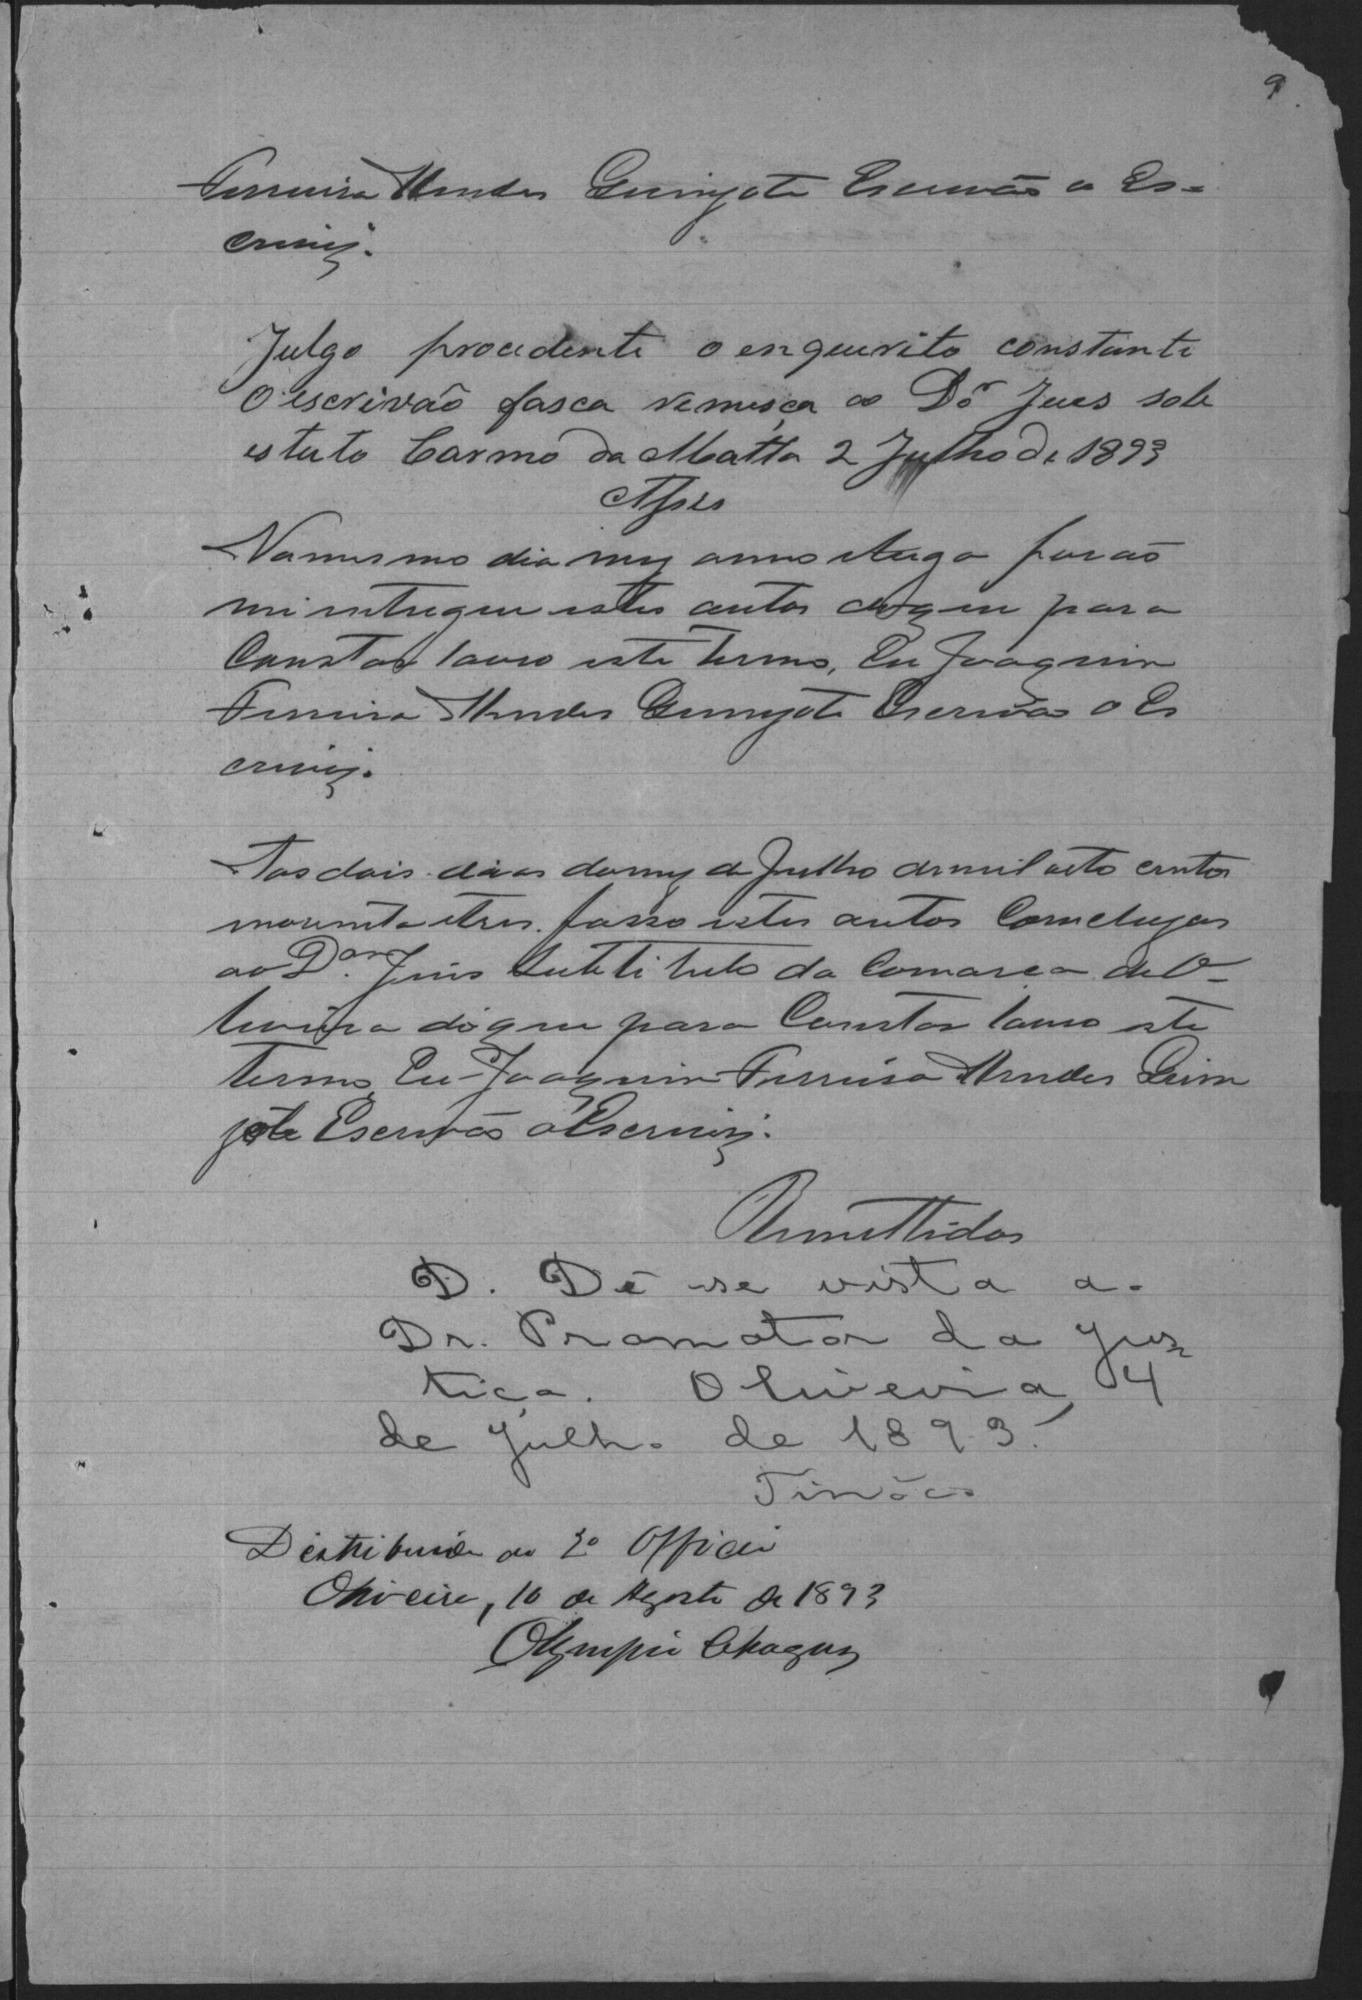 9
Ferreira Mendes Escrivão o Es-
crivi.
Julgo procedente o enquerito constante
O escrivão fasca remesça ao Dor Jues sob
estuto Carmo da Matta 2 Julho de 1893
No mesmo dia mez anno e lugar forão
mi entregue estes autos doque para
Constar lavro este termo, Eu Joaquim
Ferreira Mendes Escrivão o Es
crivi.
Aos dois dias do mez de Julho de mil oito centos
noventa e tres fasso estes autos Concluzos
ao Dor Juis Subtituto da Comarca de O-
liveira do que para Constar lavro este
termo, Eu Joaquim Ferreira Mendes
Escrivão o Escrivi.
Remettidos
D. Dê-se vista ao
Dr. Promotor da Jus-
tiça. Oliveira, 4
de Julho de 1893.
Tinôco
Distribuido ao 2º Officio
Oliveira, 10 de Agosto de 1893
Olympio Chagas